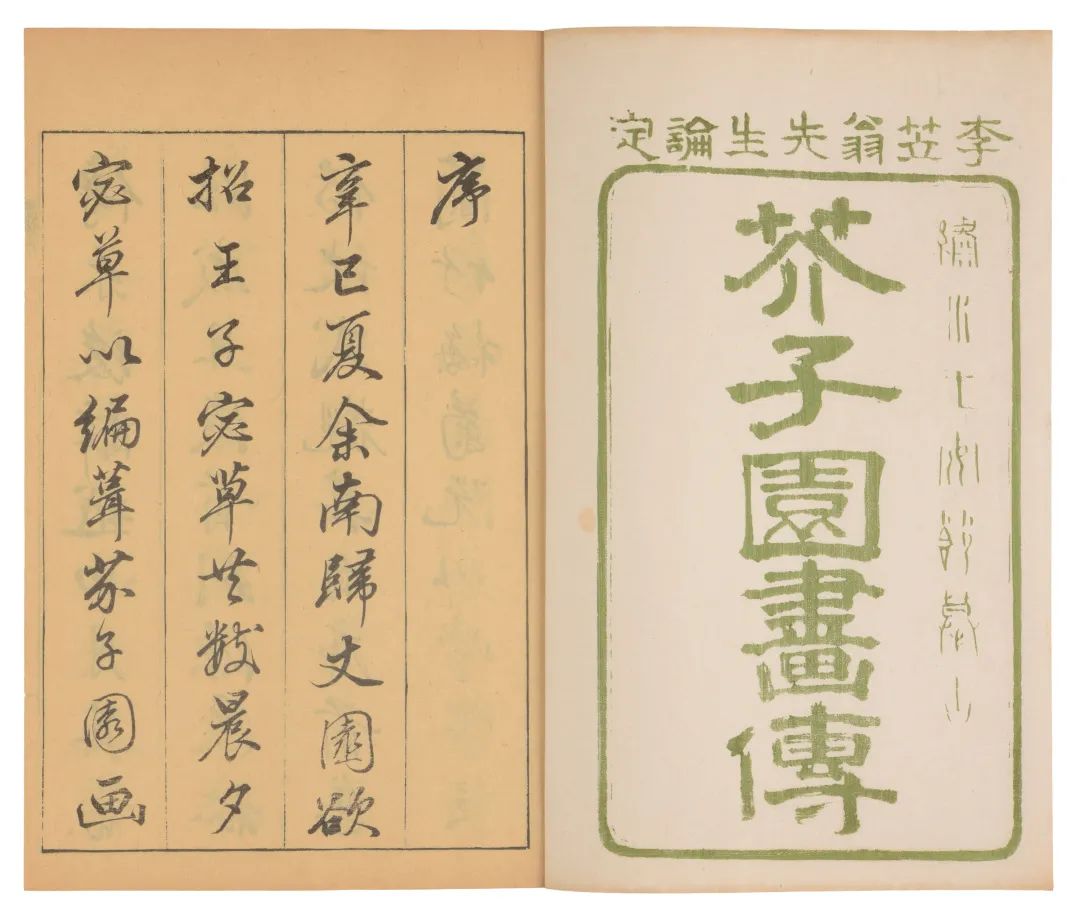 李笠翁先生論定
繡水
芥子園畫傳
序
辛巳夏余南歸丈園欲
招王子宓草共數晨夕
宓草以編葺芥子園画